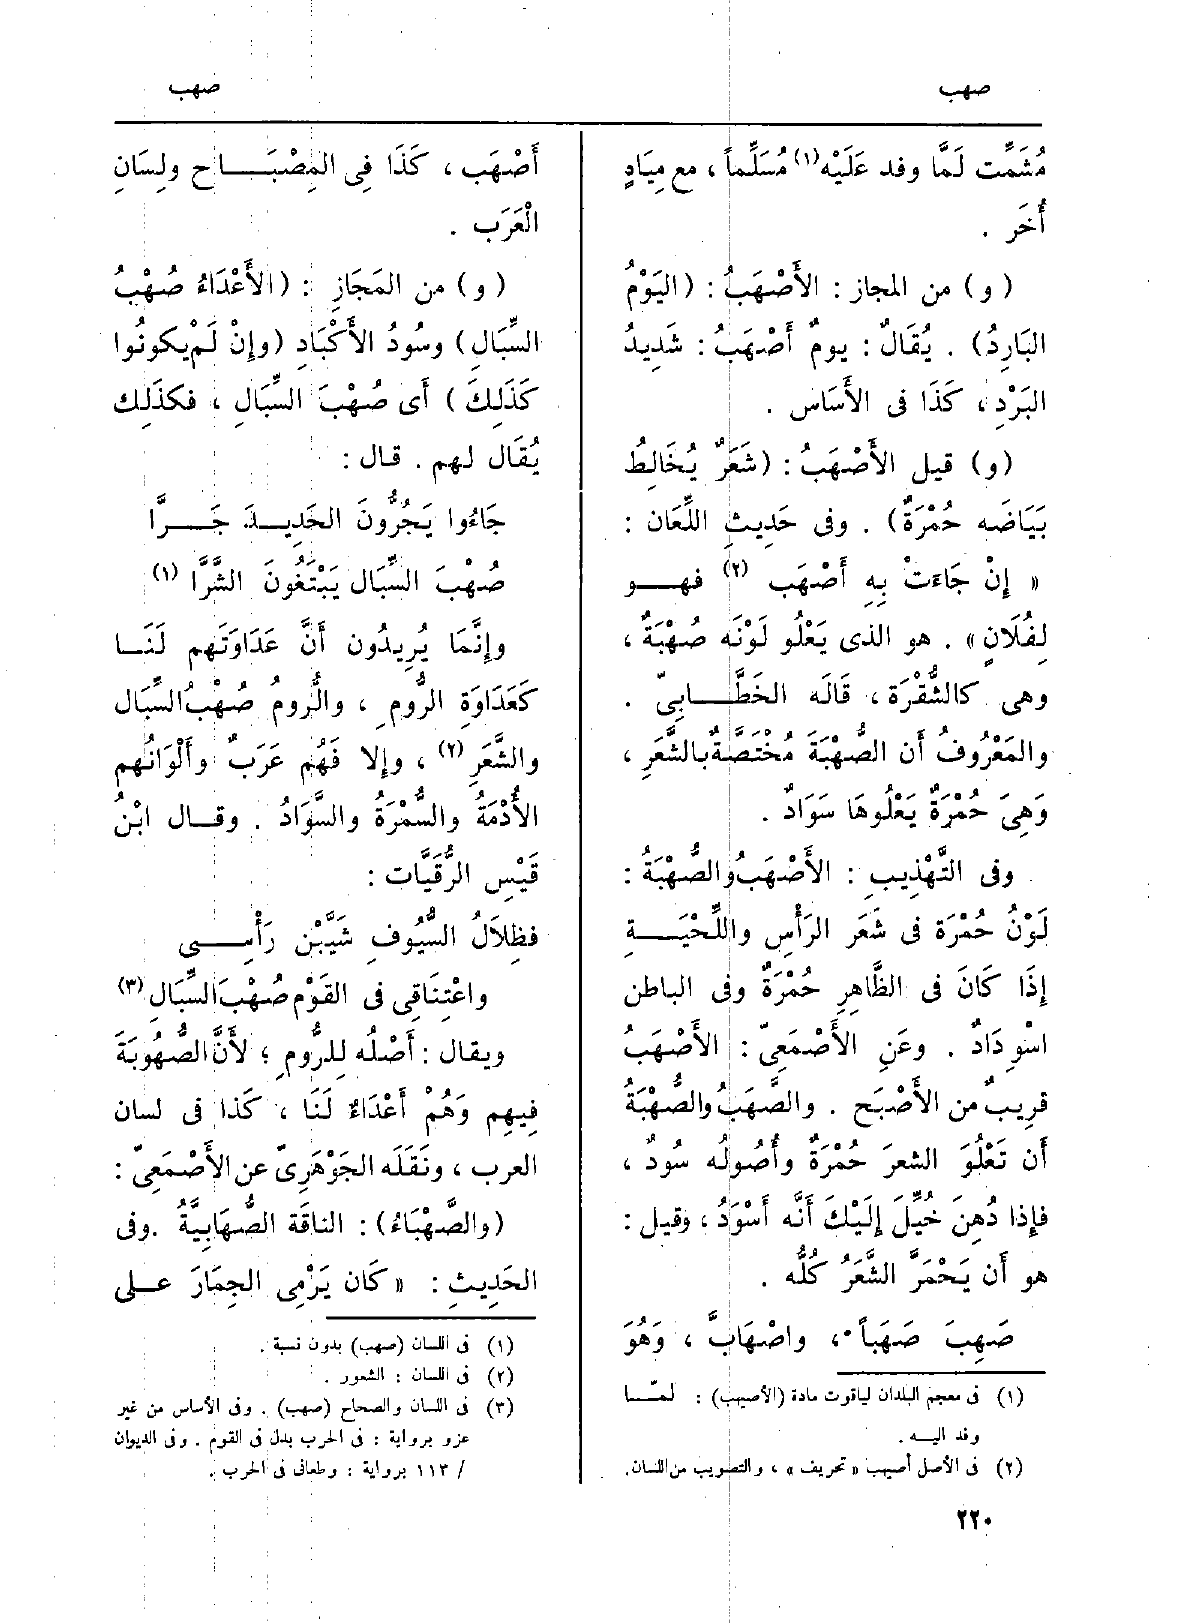 صهب
صهب
مُشَمِّت لَمَّا وفد عَلَيْه(١) مُسَلِّماً ، مع مِيَاهٍ
أُخَر .
(و) من المجاز : الأَصْهَبُ : (اليَوْمُ
البَارِدُ) . يُقَالُ : يومٌ أَصْهَبُ : شَدِيدُ
البَرْدِ ، كَذَا فى الأَسَاس .
(و) قيل الأَصْهَبُ : (شَعَرٌ يُخَالِطُ
بَيَاضَه حُمْرَةٌ) . وفى حَدِيثِ اللِّعَان :
« إِنْ جَاءَتْ بِهِ أَصْهَب (٢) فهــو
لِفُلَانٍ » . هو الذى يَعْلُو لَوْنَه صُهْبَةٌ ،
وهى كالشُّقْرَة ، قَالَه الخَطَّــابِىّ .
والمَعْرُوفُ أَن الصُّهْبَةَ مُخْتَصَّةٌ بالشَّعَرِ ،
وَهِىَ حُمْرَةٌ يَعْلُوهَا سَوَادٌ .
وفى التَّهْذِيبِ : الأَصْهَبُ والصُّهْبَةُ :
لَوْنُ حُمْرَة فى شَعَر الرَأْسِ واللِّحْيَــةِ
إِذَا كَانَ فى الظَّاهِرِ حُمْرَةٌ وفى الباطن
اسْوِدَادٌ . وعَنِ الأَصْمَعِىّ : الأَصْهَبُ
قريبٌ من الأَصْبَح . والصَّهَبُ والصُّهْبَةُ
أَن تَعْلُوَ الشعرَ حُمْرَةٌ وأُصُولُه سُودٌ ،
فإِذا دُهِنَ خُيِّلَ إِلَيْكَ أَنَّه أَسْوَدُ ، وقيل :
هو أَن يَحْمَرَّ الشَّعَرُ كُلُّه .
صَهِبَ صَهَباً ، واصْهَابَّ ، وَهُوَ
(١) فى معجم البلدان لياقوت مادة (الأصيهب) : لمــا
وفد اليــه .
(٢) فى الأصل أصيهب « تحريف » ، والتصويب من اللسان.
أَصْهَب ، كَذَا فِى المِصْبَــاح ولِسَانِ
الْعَرَب .
(و) من المَجَازِ : (الأَعْدَاءُ صُهْبُ
السِّبَالِ) وسُودُ الأَكْبَادِ (وإِنْ لَمْ يكونُوا
كَذَلِكَ) أَى صُهْبَ السِّبَالِ ، فكذلِك
يُقَال لهم . قال :
جَاءُوا يَجُرُّونَ الحَدِيــدَ جَــرًّا
صُهْبَ السِّبَال يَبْتَغُونَ الشَّرَّا (١)
وإِنَّمَا يُرِيدُون أَنَّ عَدَاوَتَهم لَنَــا
كَعَدَاوَةِ الرُّومِ ، والرُّومُ صُهْبُ السِّبَال
والشَّعَرِ (٢) ، وإِلا فَهُم عَرَبٌ وأَلْوَانُهم
الأُدْمَةُ والسُّمْرَةُ والسَّوَادُ . وقــال ابْنُ
قَيْسِ الرُّقَيَّات :
فظِلَالُ السُّيُوفِ شَيَّبْن رَأْسِــى
واعْتِنَاقِى فى القَوْم صُهْبَ السِّبَالِ (٣)
ويقال : أَصْلُه لِلرُّومِ ؛ لأَنَّ الصُّهُوبَةَ
فِيهِم وَهُمْ أَعْدَاءٌ لَنَا ، كَذَا فى لسان
العرب ، ونَقَلَه الجَوْهَرِىّ عن الأَصْمَعِىّ :
(والصَّهْبَاءُ) : الناقَة الصُّهَابِيَّةُ . وفى
الحَدِيثِ : « كَان يَرْمِى الجِمَارَ علــى
(١) فى اللسان (صهب) بدون نسبة .
(٢) فى اللسان : الشعور .
(٣) فى اللسان والصحاح (صهب) . وفى الأساس من غير
عزو برواية : فى الحرب بدل فى القوم . وفى الديوان
/ ١١٣ برواية : وطعانى فى الحرب .
٢٢٠